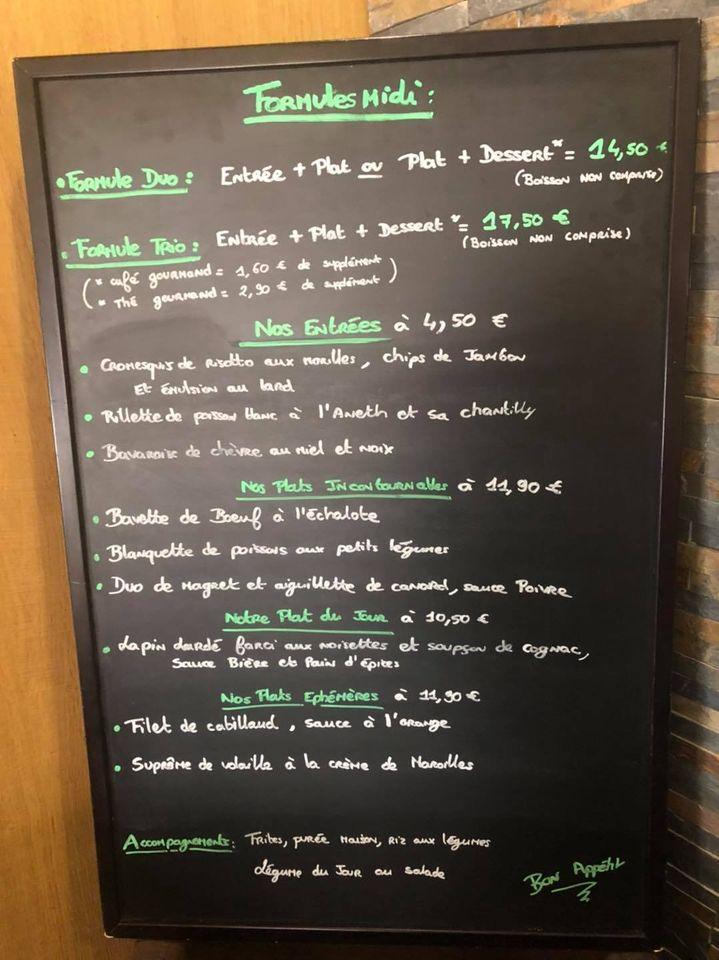 Formules Midi :
• Formule Duo : Entrée + Plat ou Plat + Dessert* = 14,50 €
(Boisson non comprise)
• Formule Trio : Entrée + Plat + Dessert *= 17,50 €
(Boisson non comprise)
(* café gourmand = 1,60 € de supplément)
(* Thé gourmand = 2,90 € de supplément)
Nos Entrées à 4,50 €
• Cromesquis de risotto aux morilles, chips de Jambon
Et émulsion au lard
• Rillette de poisson blanc à l'Aneth et sa chantilly
• Bavaroise de chèvre au miel et noix
Nos Plats Incontournables à 11,90 €
• Bavette de Boeuf à l'échalote
• Blanquette de poissons aux petits légumes
• Duo de Magret et aiguillette de canard, sauce Poivre
Notre Plat du Jour à 10,50 €
• Lapin farci aux noisettes et soupçon de cognac,
Sauce Bière et Pain d'épices
Nos Plats Ephémères à 11,90 €
• Filet de cabillaud, sauce à l'orange
• Suprême de volaille à la crème de Maroilles
Accompagnements : Frites, purée maison, riz aux légumes
légume du Jour ou salade
Bon Appétit